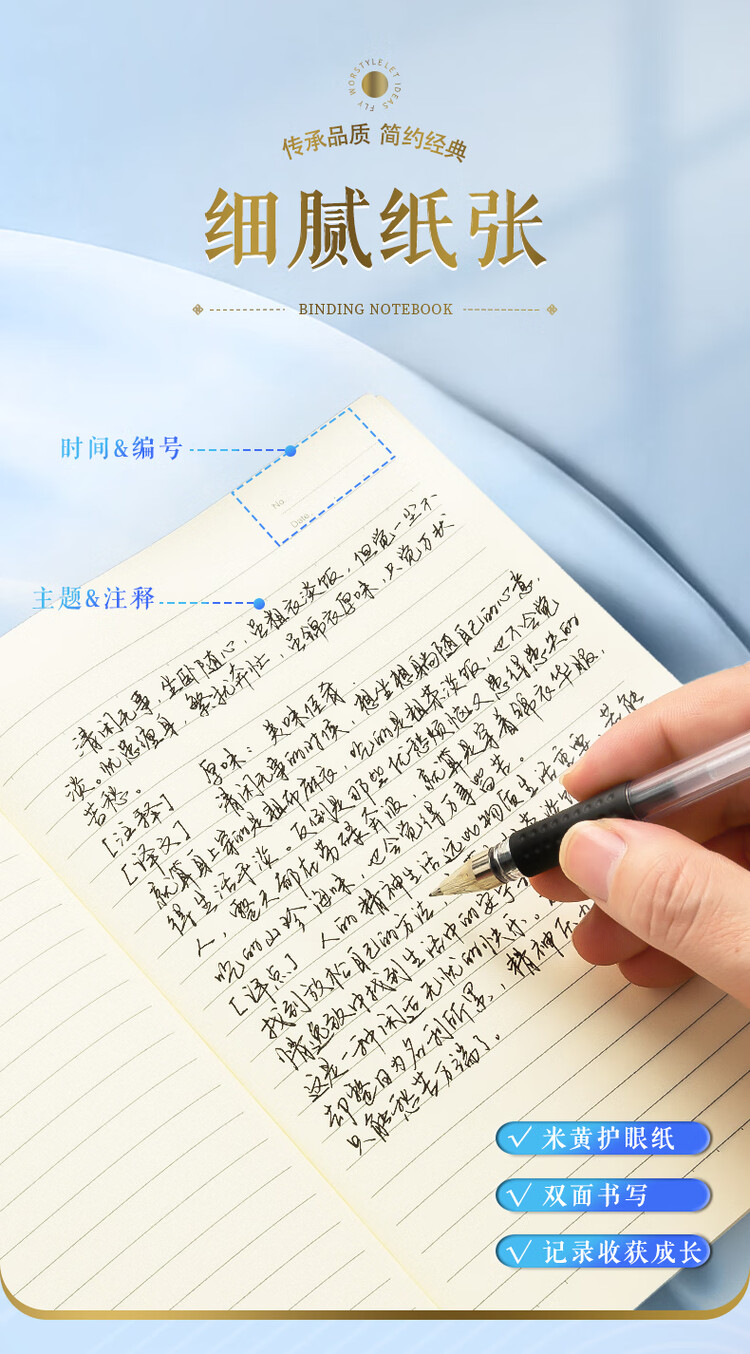 FLY WORSTYLELET IDEAS
传承品质 简约经典
细腻纸张
BINDING NOTEBOOK
时间&编号
No
Date
主题&注释
清闲无事，坐卧随心，虽粗衣淡饭，但觉一尘不
淡。忧患缠身，繁扰奔忙，虽锦衣厚味，只觉万状
苦愁。
[注释] 厚味：美味佳肴。
[译文] 清闲无事的时候，想坐想躺随自己的心意，
就算身上穿的是粗布麻衣，吃的是粗茶淡饭，也不会觉
得生活平淡。反倒是那些忧愁烦恼又患得患失的
人，整天都在劳碌奔波，就算是穿着锦衣华服，
吃的山珍海味，也会觉得万事皆苦。
[评点] 人的精神生活远比物质生活重要，若能
找到放松自己的方法
情逸致中找到生活中的安宁
这是一种闲适无忧的快乐。
却整日为名利所累，精神压力
只能愁苦万端了。
米黄护眼纸
双面书写
记录收获成长